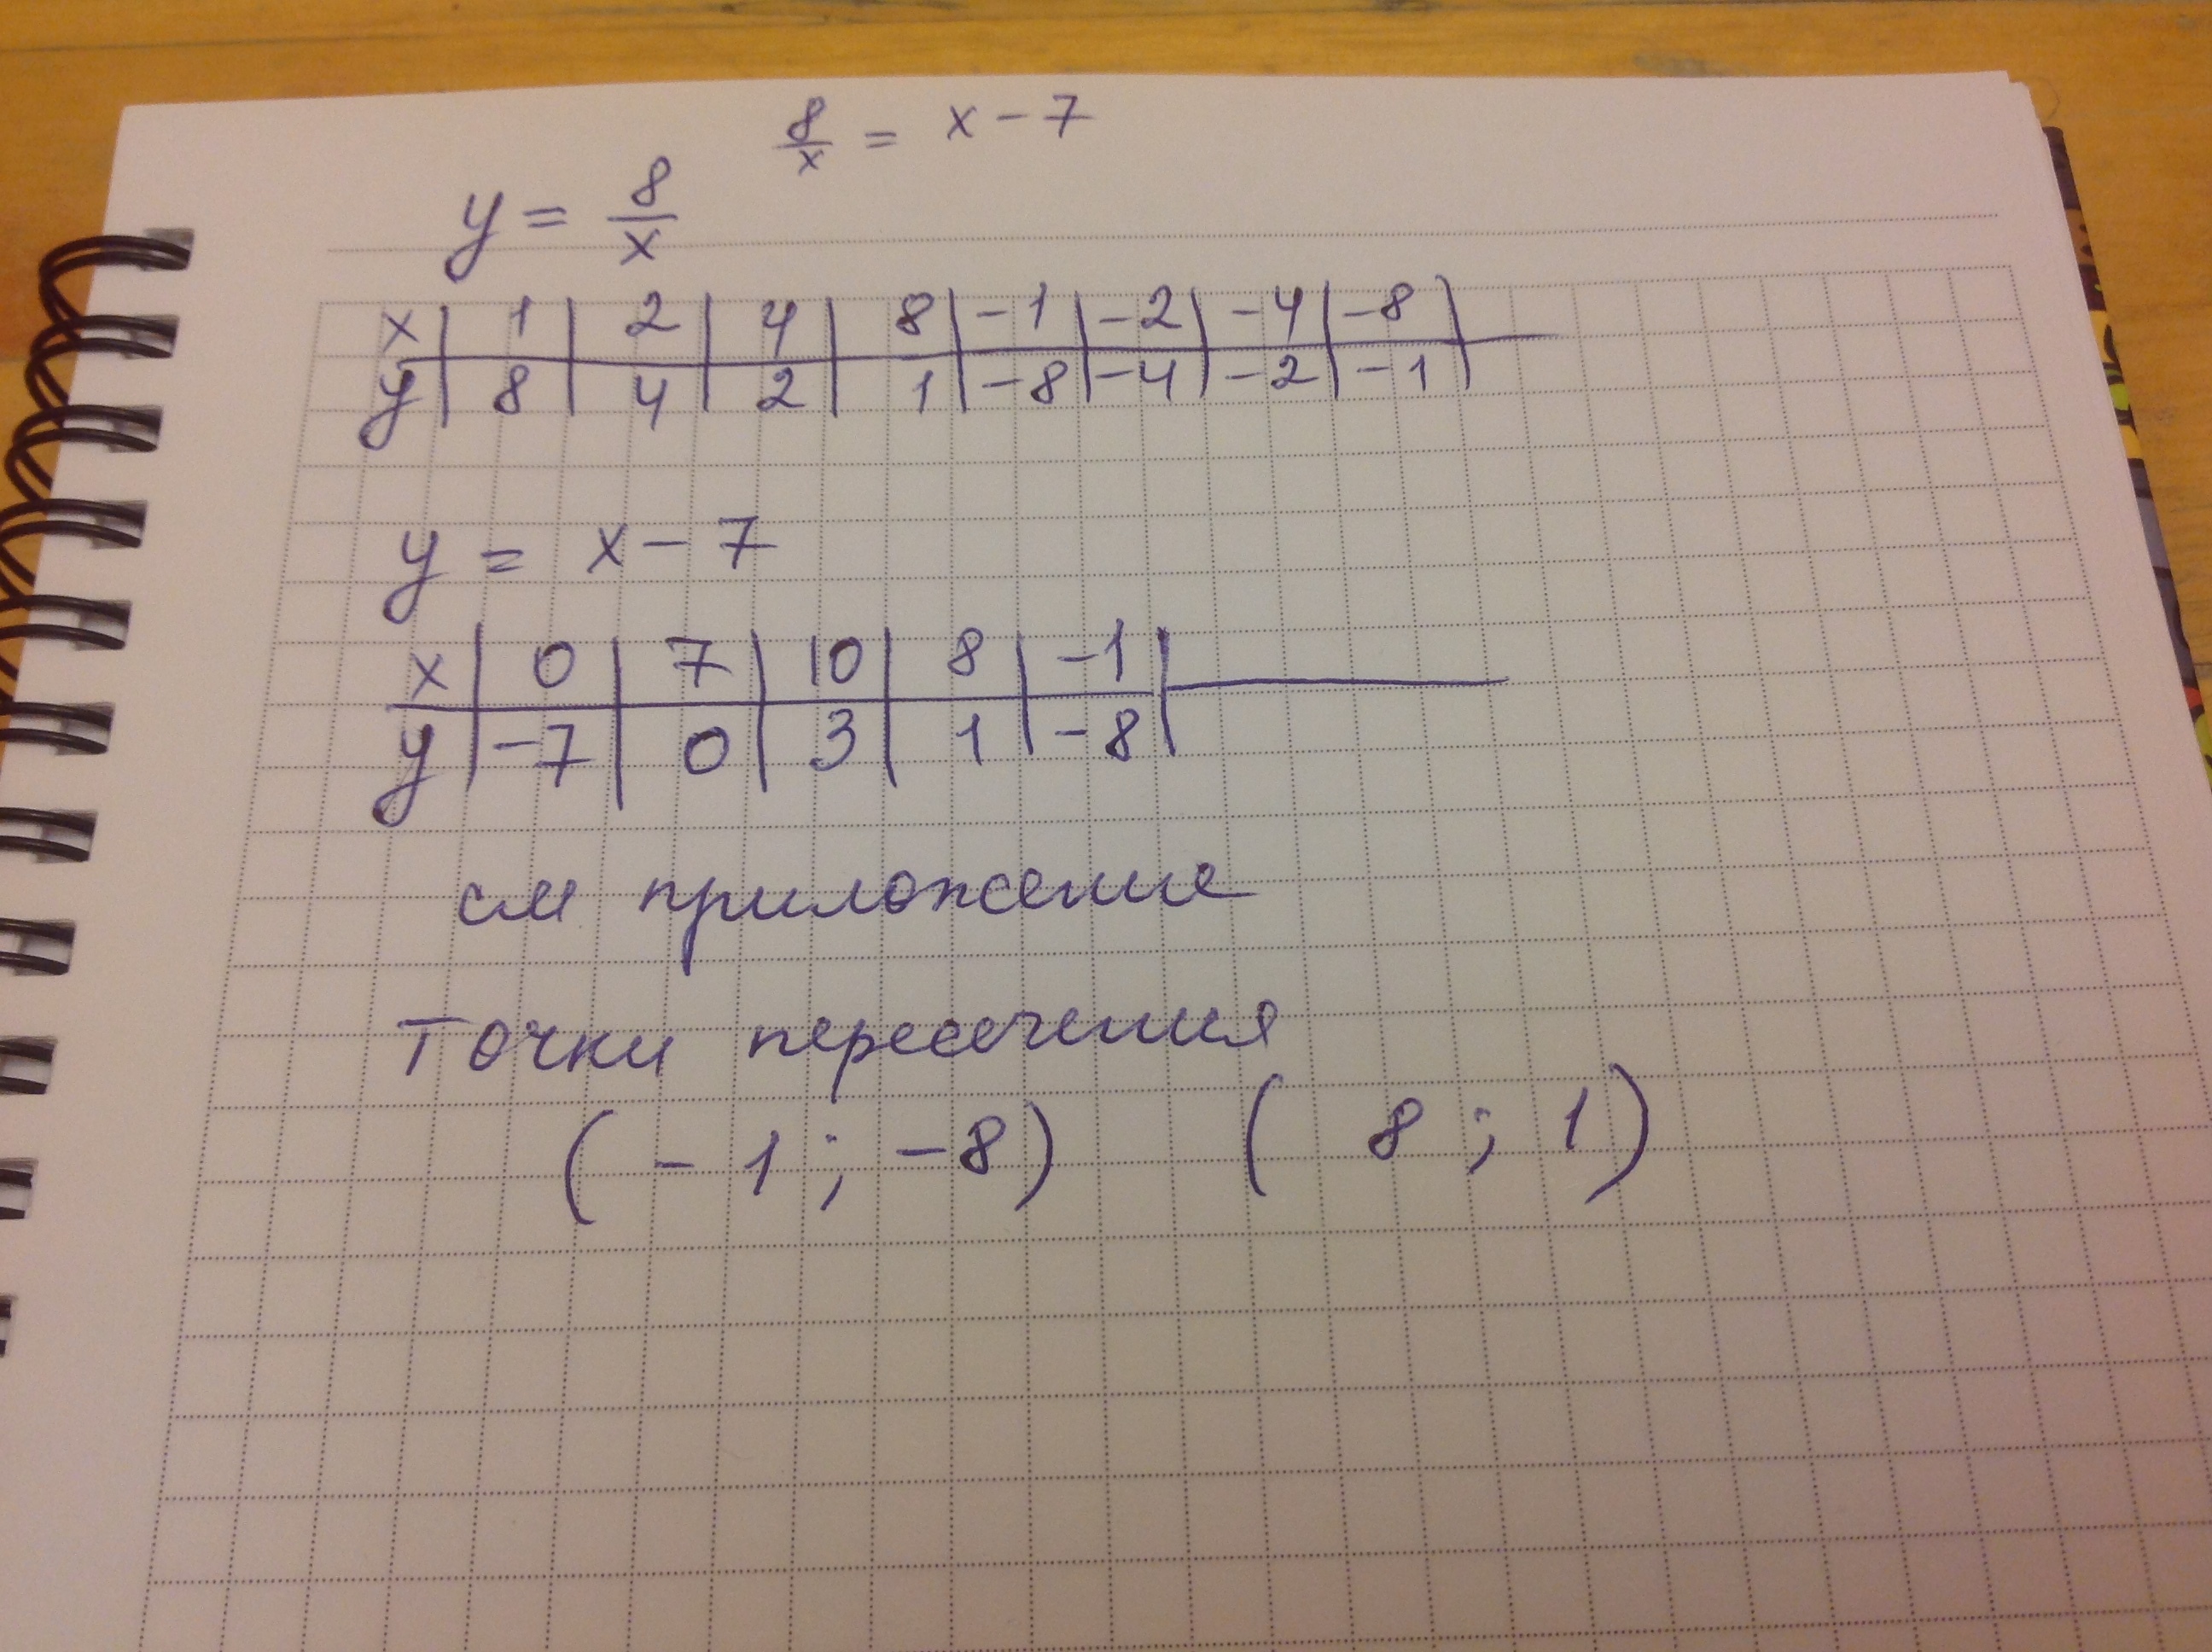 8/x = x - 7
y = 8/x
x | 1 | 2 | 4 | 8 | -1 | -2 | -4 | -8 |
y | 8 | 4 | 2 | 1 | -8 | -4 | -2 | -1 |
y = x - 7
x | 0 | 7 | 10 | 8 | -1 |
y | -7 | 0 | 3 | 1 | -8 |
см приложение
Точки пересечения
(-1; -8) (8; 1)